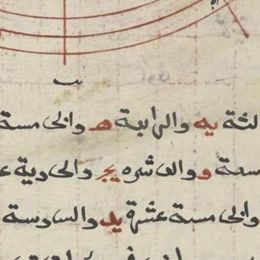 ـالثة يه والرابعة ه والخامسة
ـسعة و والعاشره يج والحادية عـ
والخامسة عشرة يد والسادسة